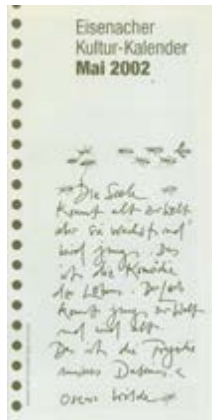 Eisenacher
Kultur-Kalender
Mai 2002
Die Seele
kommt alt zur Welt
aber sie wächst und
wird jung. Das
ist die Komödie
des Lebens. Der Leib
kommt jung zur Welt
und wird alt
Das ist die Tragödie
unseres Daseins
Oscar Wilde